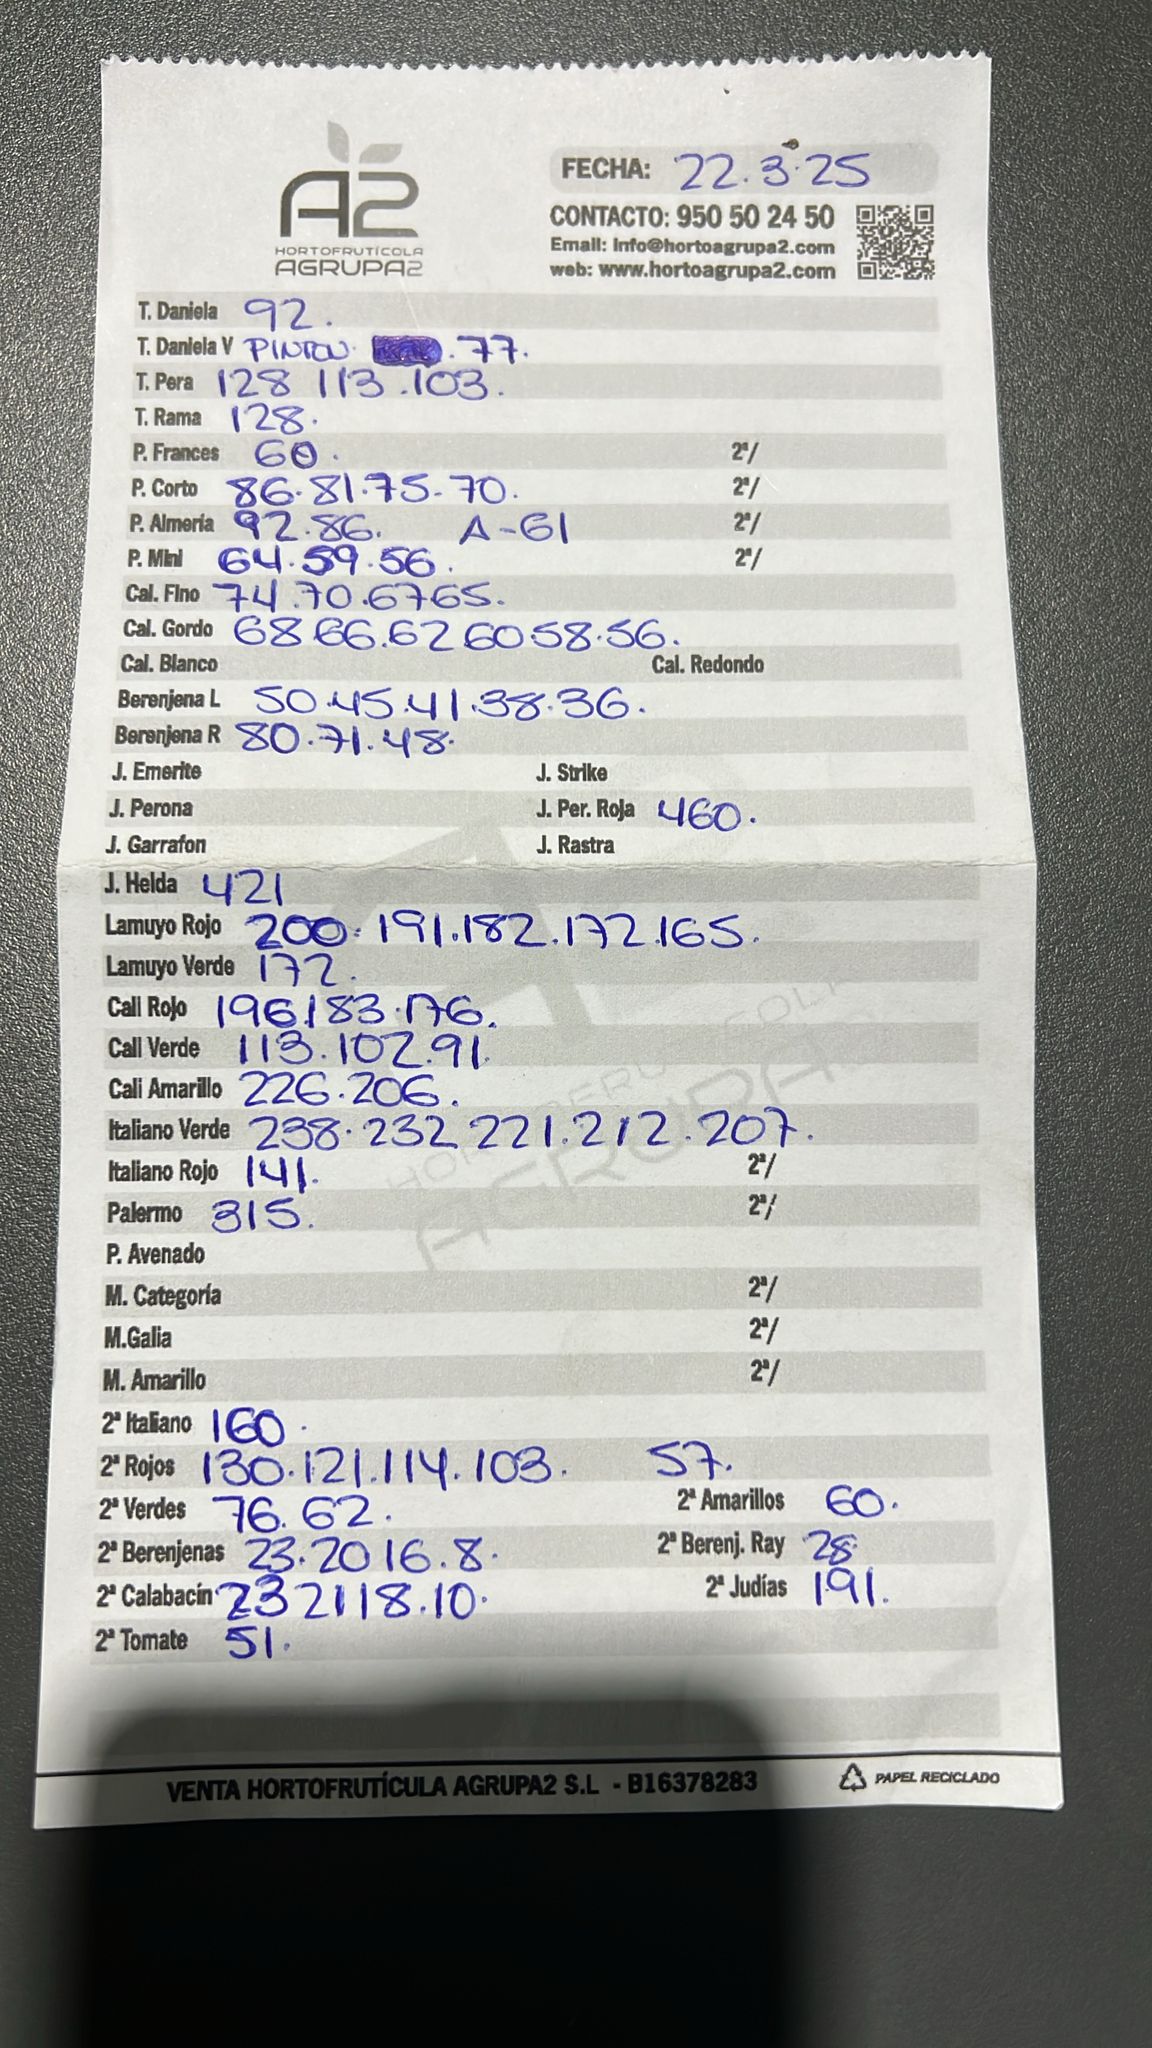 A2
HORTOFRUTÍCOLA
AGRUPA2
FECHA: 22.3.25
CONTACTO: 950 50 24 50
Email: Info@hortoagrupa2.com
web: www.hortoagrupa2.com
T. Daniela 92.
T. Daniela V PINTON. .77.
T. Pera 128 113.103.
T. Rama 128.
P. Frances 60. 2ª/
P. Corto 86.81.75.70. 2ª/
P. Almería 92.86. A-61 2ª/
P. Mini 64.59.56. 2ª/
Cal. Fino 74.70.67 65.
Cal. Gordo 68 66.62 60 58.56.
Cal. Blanco Cal. Redondo
Berenjena L 50.45.41.38.36.
Berenjena R 80.71.48.
J. Emerite J. Strike
J. Perona J. Per. Roja 460.
J. Garrafon J. Rastra
J. Helda 421
Lamuyo Rojo 200.191.182.172.165.
Lamuyo Verde 172.
Cali Rojo 196.183.176.
Cali Verde 113.102.91.
Cali Amarillo 226.206.
Italiano Verde 238.232 221.212.207.
Italiano Rojo 141. 2ª/
Palermo 315. 2ª/
P. Avenado
M. Categoría 2ª/
M.Galia 2ª/
M. Amarillo 2ª/
2ª Italiano 160.
2ª Rojos 130.121.114.103. 57.
2ª Verdes 76.62. 2ª Amarillos 60.
2ª Berenjenas 23.20 16.8. 2ª Berenj. Ray 28.
2ª Calabacín 23 21 18.10. 2ª Judías 191.
2ª Tomate 51.
VENTA HORTOFRUTÍCULA AGRUPA2 S.L - B16378283 PAPEL RECICLADO